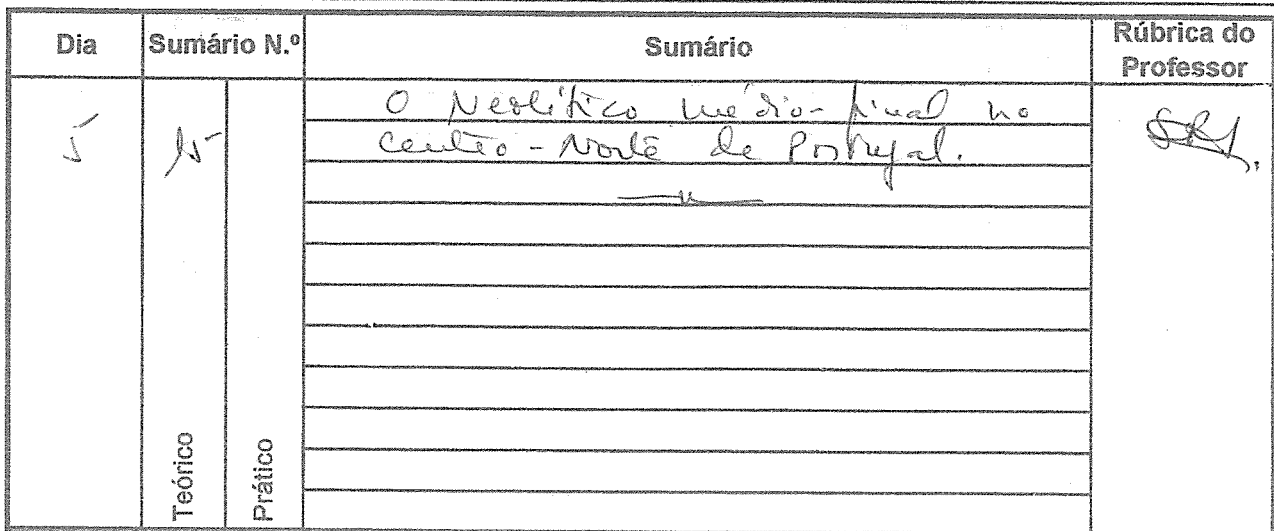 Dia Sumário N.º Sumário Rúbrica do Professor
5 15 O Neolítico médio-final no
Centro-Norte de Portugal.
Teórico Prático